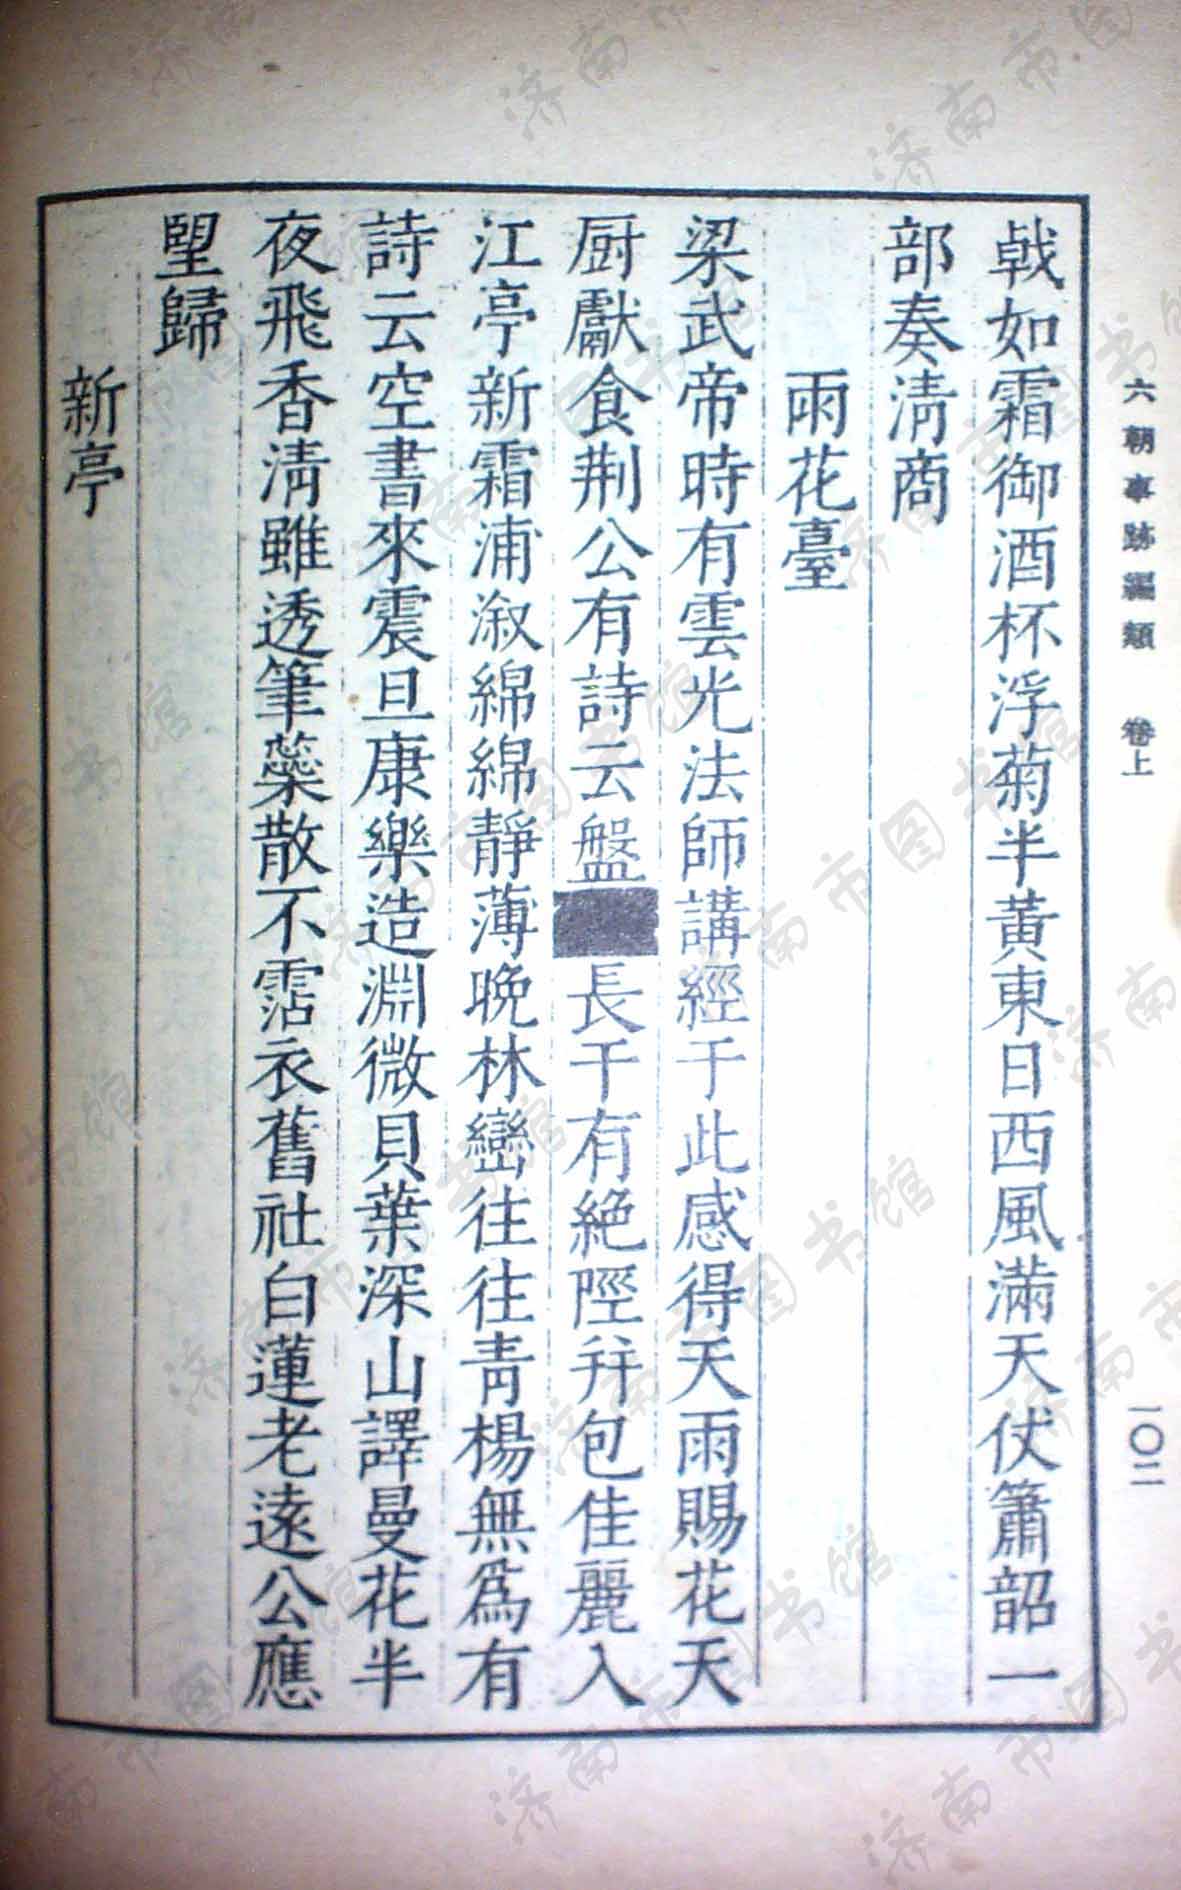 六朝事跡編類 卷上 一〇二
戟如霜御酒杯浮菊半黃東日西風滿天仗簫韶一
部奏清商
雨花臺
梁武帝時有雲光法師講經于此感得天雨賜花天
厨獻食荆公有詩云盤長干有絶陘并包佳麗入
江亭新霜浦溆綿綿靜薄晚林巒往往青楊無爲有
詩云空書來震旦康樂造淵微貝葉深山譯曼花半
夜飛香清雖透筆蘂散不霑衣舊社白蓮老遠公應
望歸
新亭
济南市图书馆